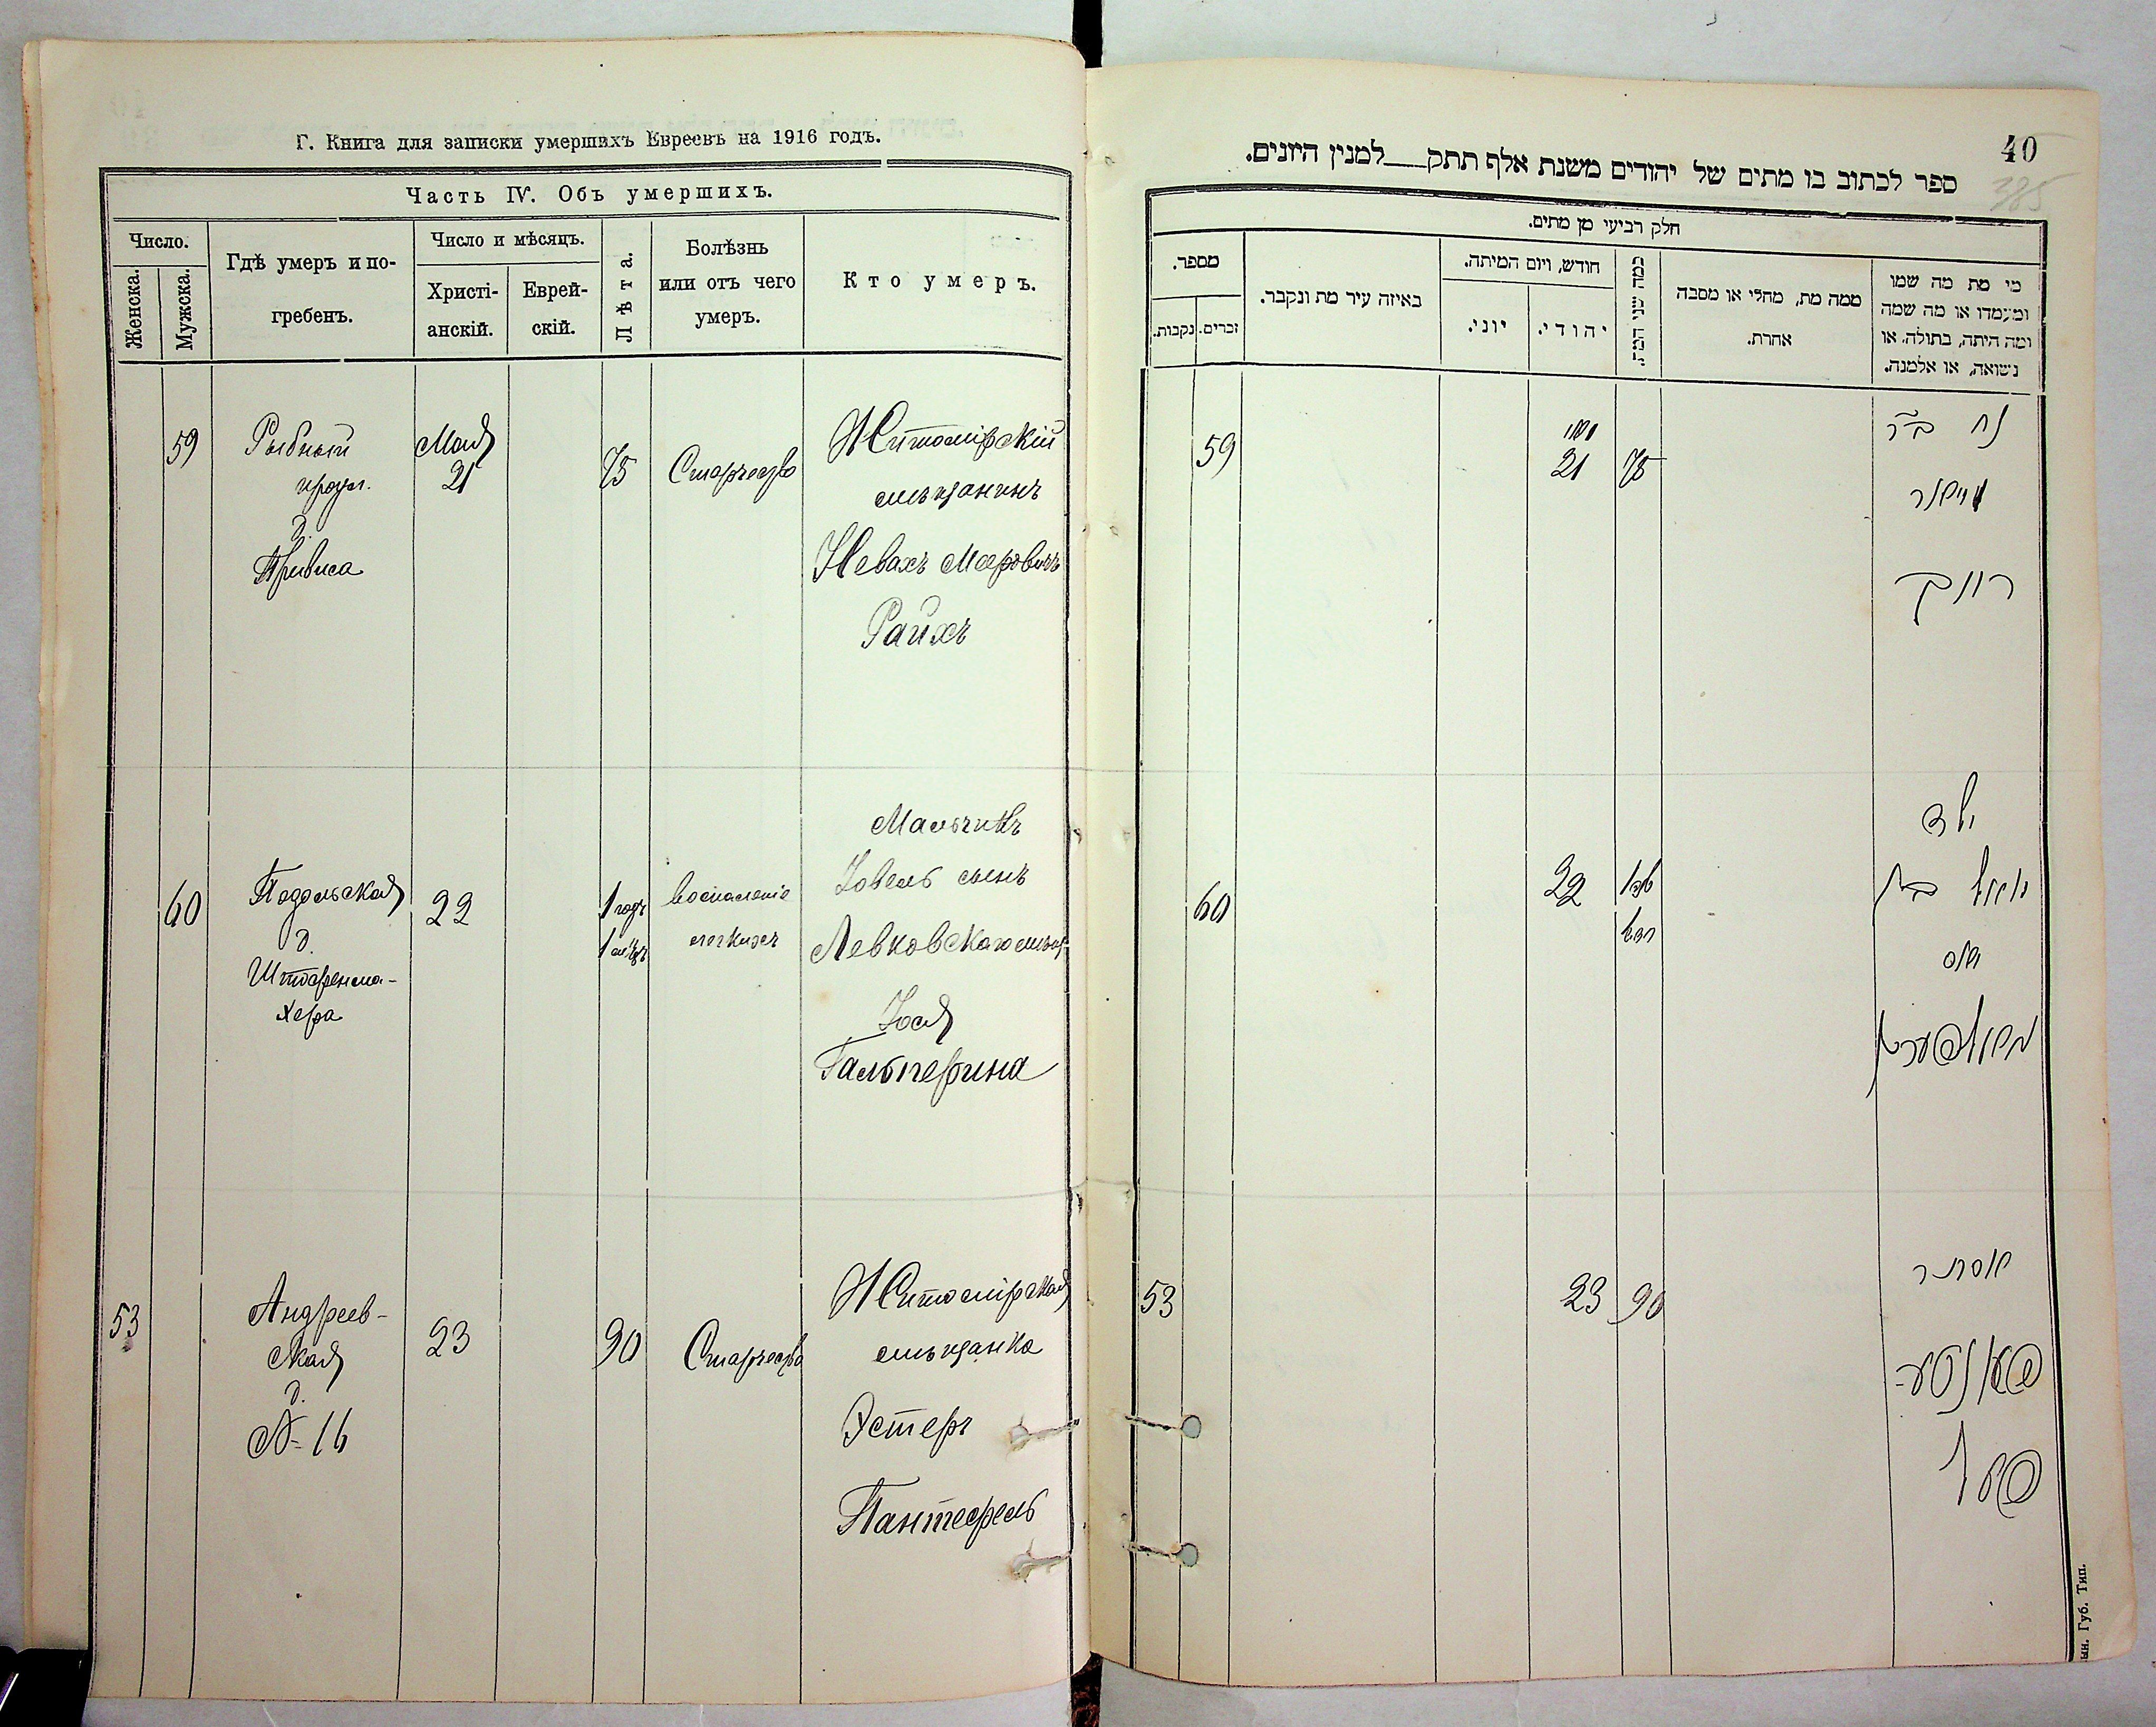 Г. Книга для записки умершихъ Евреевъ на 1916 годъ.
Часть IV. Объ умершихъ.
Число.
Женска.
Мужска.
Гдѣ умеръ и по-
гребенъ.
Число и мѣсяцъ.
Христі-
анскій.
Еврей-
скій.
Лѣта.
Болѣзнь
или отъ чего
умеръ.
Кто умеръ.
59
Рыбный
д.
Привиса
Мая
21
75
Старчество
Житомірскій
мѣщанинъ
Невахъ Меровичъ
Райхъ
60
Подольская
д.
Штеренма-
хера
22
1 годъ
1 мѣц.
воспаленіе
легкихъ
Мальчикъ
Іовель сынъ
Левковскаго мѣщ.
Іося
Гальперина
53
Андреев-
ская
д.
№ 16
23
90
Старчество
Житомірская
мѣщанка
Эстеръ
Пантефель
40
385
ספר לכתוב בו מתים של יהודים משנת אלף תתק למנין היונים.
חלק רביעי מן מתים.
מספר.
נקבות.
זכרים.
באיזה עיר מת ונקבר.
חודש, ויום המיתה.
יוני.
יהודי.
כמה שני המת.
ממה מת, מחלי או מסבה
אחרת.
מי מת מה שמו
ומעמדו או מה שמה
ומה היתה, בתולה, או
נשואה, או אלמנה.
59
21
75
נח בר
רייך
60
22
ילד
53
23
90
אסתר
פאנטא-
פאל
ын. Губ. Тип.